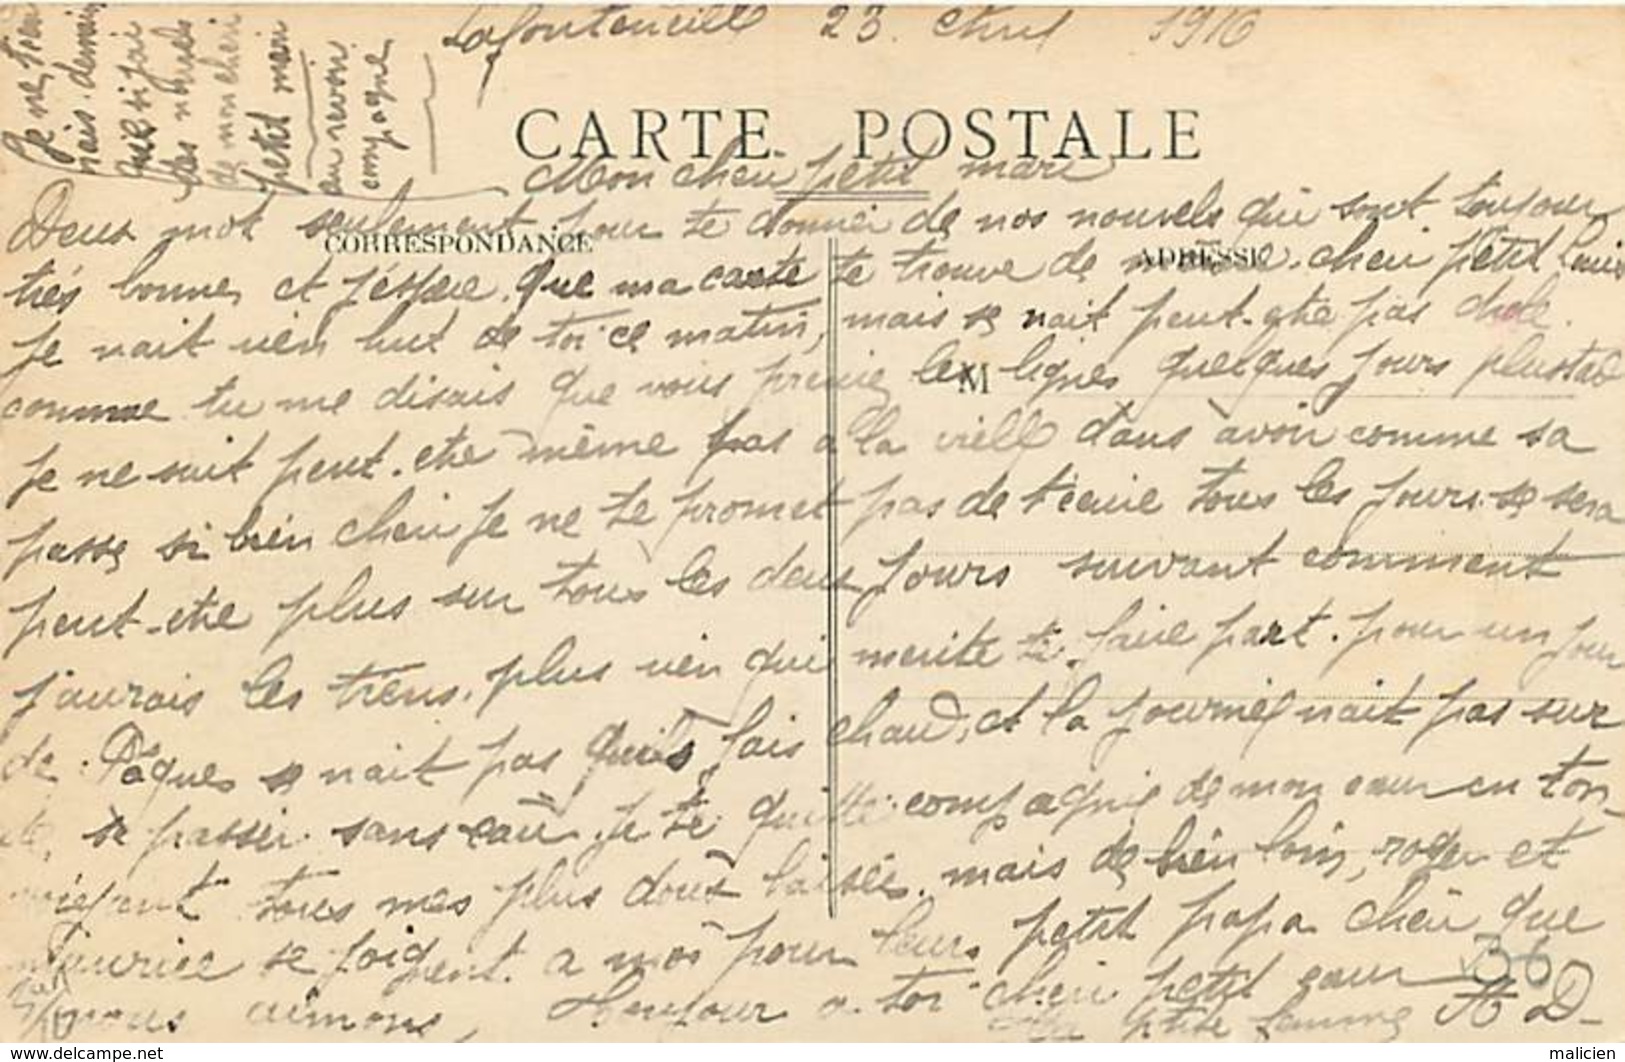 Lafontenille 23. Avril 1916
CARTE POSTALE
Mon cheri petit mari
CORRESPONDANCE
ADRESSE
M
Deux mot seulement pour te donner de nos nouvels qui sont toujour
très bonnes et j'éspère que ma carte te trouve de cheri petit Louis
Je nait rien hut de toi ce matin, mais se nait peut-etre pas drole.
comme tu me disais que vous preniez les lignes quelques jours plustad
Je ne suit peut-etre même pas a la vielle dans avoir comme sa
passe si bien cheri je ne te promet pas de t'ecrire tous les jours. se sera
peut-etre plus sur tous les deux jours suivant comment
j'aurais les tiens. plus rien qui merite te faire part. pour un jour
de Pâques se nait pas quils fais chaud, et la journée nait pas sur
de se passer sans eau. je te quitte compagnie de mon cœur en t'en
voiyant tous mes plus doux baisés. mais de bien loin, roger et
Maurice se joignent a moi pour leurs petit papa cheri que
nous aimons, Bonjour a toi cheri petit cœur
ptite femme A D
36
Je ne, tien
nais. demain
aussi j'ai
des nouvels
de mon cheri
petit mari
au revoir
compagne
delcampe.net
malicien